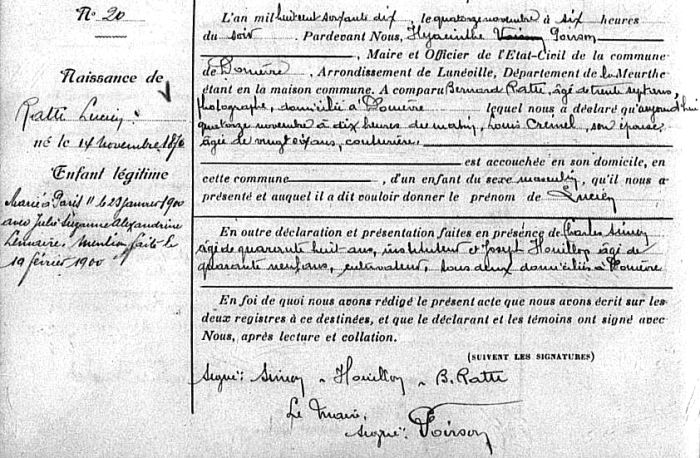 N° 20
Naissance de
Ratti Lucien
né le 14 novembre 1870
Enfant légitime
Marié à Paris 11e le 23 janvier 1900
avec Julie Suzanne Alexandrine
Lemaire. Mention faite le
19 février 1900
L'an mil huit cent soixante dix, le quatorze novembre à six heures
du soir. Pardevant Nous, Hyacinthe Poirson
, Maire et Officier de l'Etat-Civil de la commune
de , Arrondissement de Lunéville, Département de la Meurthe
étant en la maison commune. A comparu Bernard Ratti, âgé de trente sept ans,
photographe, domicilié à lequel nous a déclaré qu'aujourd'hui
quatorze novembre à dix heures du matin, Louis , son épouse,
âgée de vingt six ans, couturière,
est accouchée en son domicile, en
cette commune , d'un enfant du sexe masculin, qu'il nous a
présenté et auquel il a dit vouloir donner le prénom de Lucien
En outre déclaration et présentation faites en présence de Charles Simon
âgé de quarante huit ans, instituteur et Joseph Houillon âgé de
quarante neuf ans, cultivateur, tous deux domiciliés à
En foi de quoi nous avons rédigé le présent acte que nous avons écrit sur les
deux registres à ce destinées, et que le déclarant et les témoins ont signé avec
Nous, après lecture et collation.
(SUIVENT LES SIGNATURES)
Signé: Simon - Houillon - B. Ratti
Le Maire,
Signé: Poirson